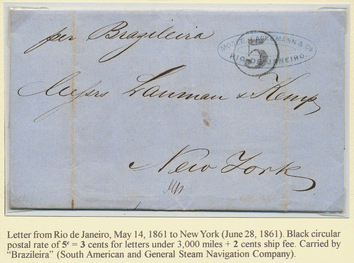 per Brazileira
RIO DE JANEIRO.
5
Messrs Lanman & Kemp
New York
Letter from Rio de Janeiro, May 14, 1861 to New York (June 28, 1861). Black circular
postal rate of 5¢ = 3 cents for letters under 3,000 miles + 2 cents ship fee. Carried by
"Brazileira" (South American and General Steam Navigation Company).